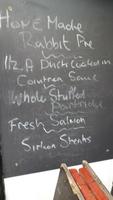 Home Made
Rabbit Pie
1/2 A Duck Cooked in
Cointreau Sauce
Whole Stuffed
Partridge
Fresh Salmon
Sirloin Steaks